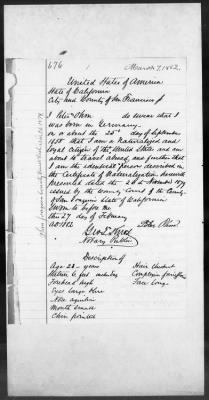 676
March 7, 1882.
United States of America
State of California
City and County of San Francisco
I Peter Ohm do swear that I
was born in Germany
on or about the 25th day of September
1858 that I am a Naturalized and
loyal citizen of the United States and am
about to travel abroad, and further that
I am the identical person described in
the Certificate of Naturalization herewith
presented dated the 1879
issued by the County Court of the County
of San Joaquin State of California
Sworn to before me
this 27 day of February
A.D. 1882
Notary Public
Description of
Age 23 years
Stature 6 feet inches
Forehead high
Eyes large blue
Nose aquiline
Mouth small
Chin pointed
Hair
Complexion
Face long